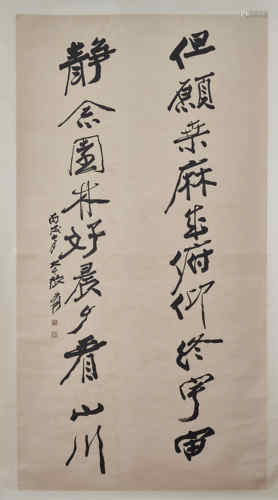 但願桑麻成俯仰終宇宙
静念園林好晨夕看山川
丙戌
大千張爰